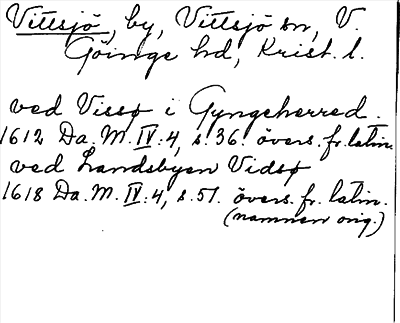 Vittsjö, by, Vittsjö sn, V.
Göinge hd, Krist. l.
ved Vissø i Gyngeherred.
1612 Da. M. IV:4, s. 36. övers. fr. latin.
ved Landsbyen Vidsø
1618 Da. M. IV:4, s. 51. övers. fr. latin.
(namnen orig.)